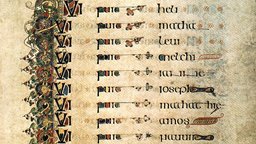 QUI fuit heli
QUI fuit mathat
QUI fuit leui
QUI fuit melchi
QUI fuit
QUI fuit ioseph
QUI fuit mathathie
QUI fuit amos
QUI fuit